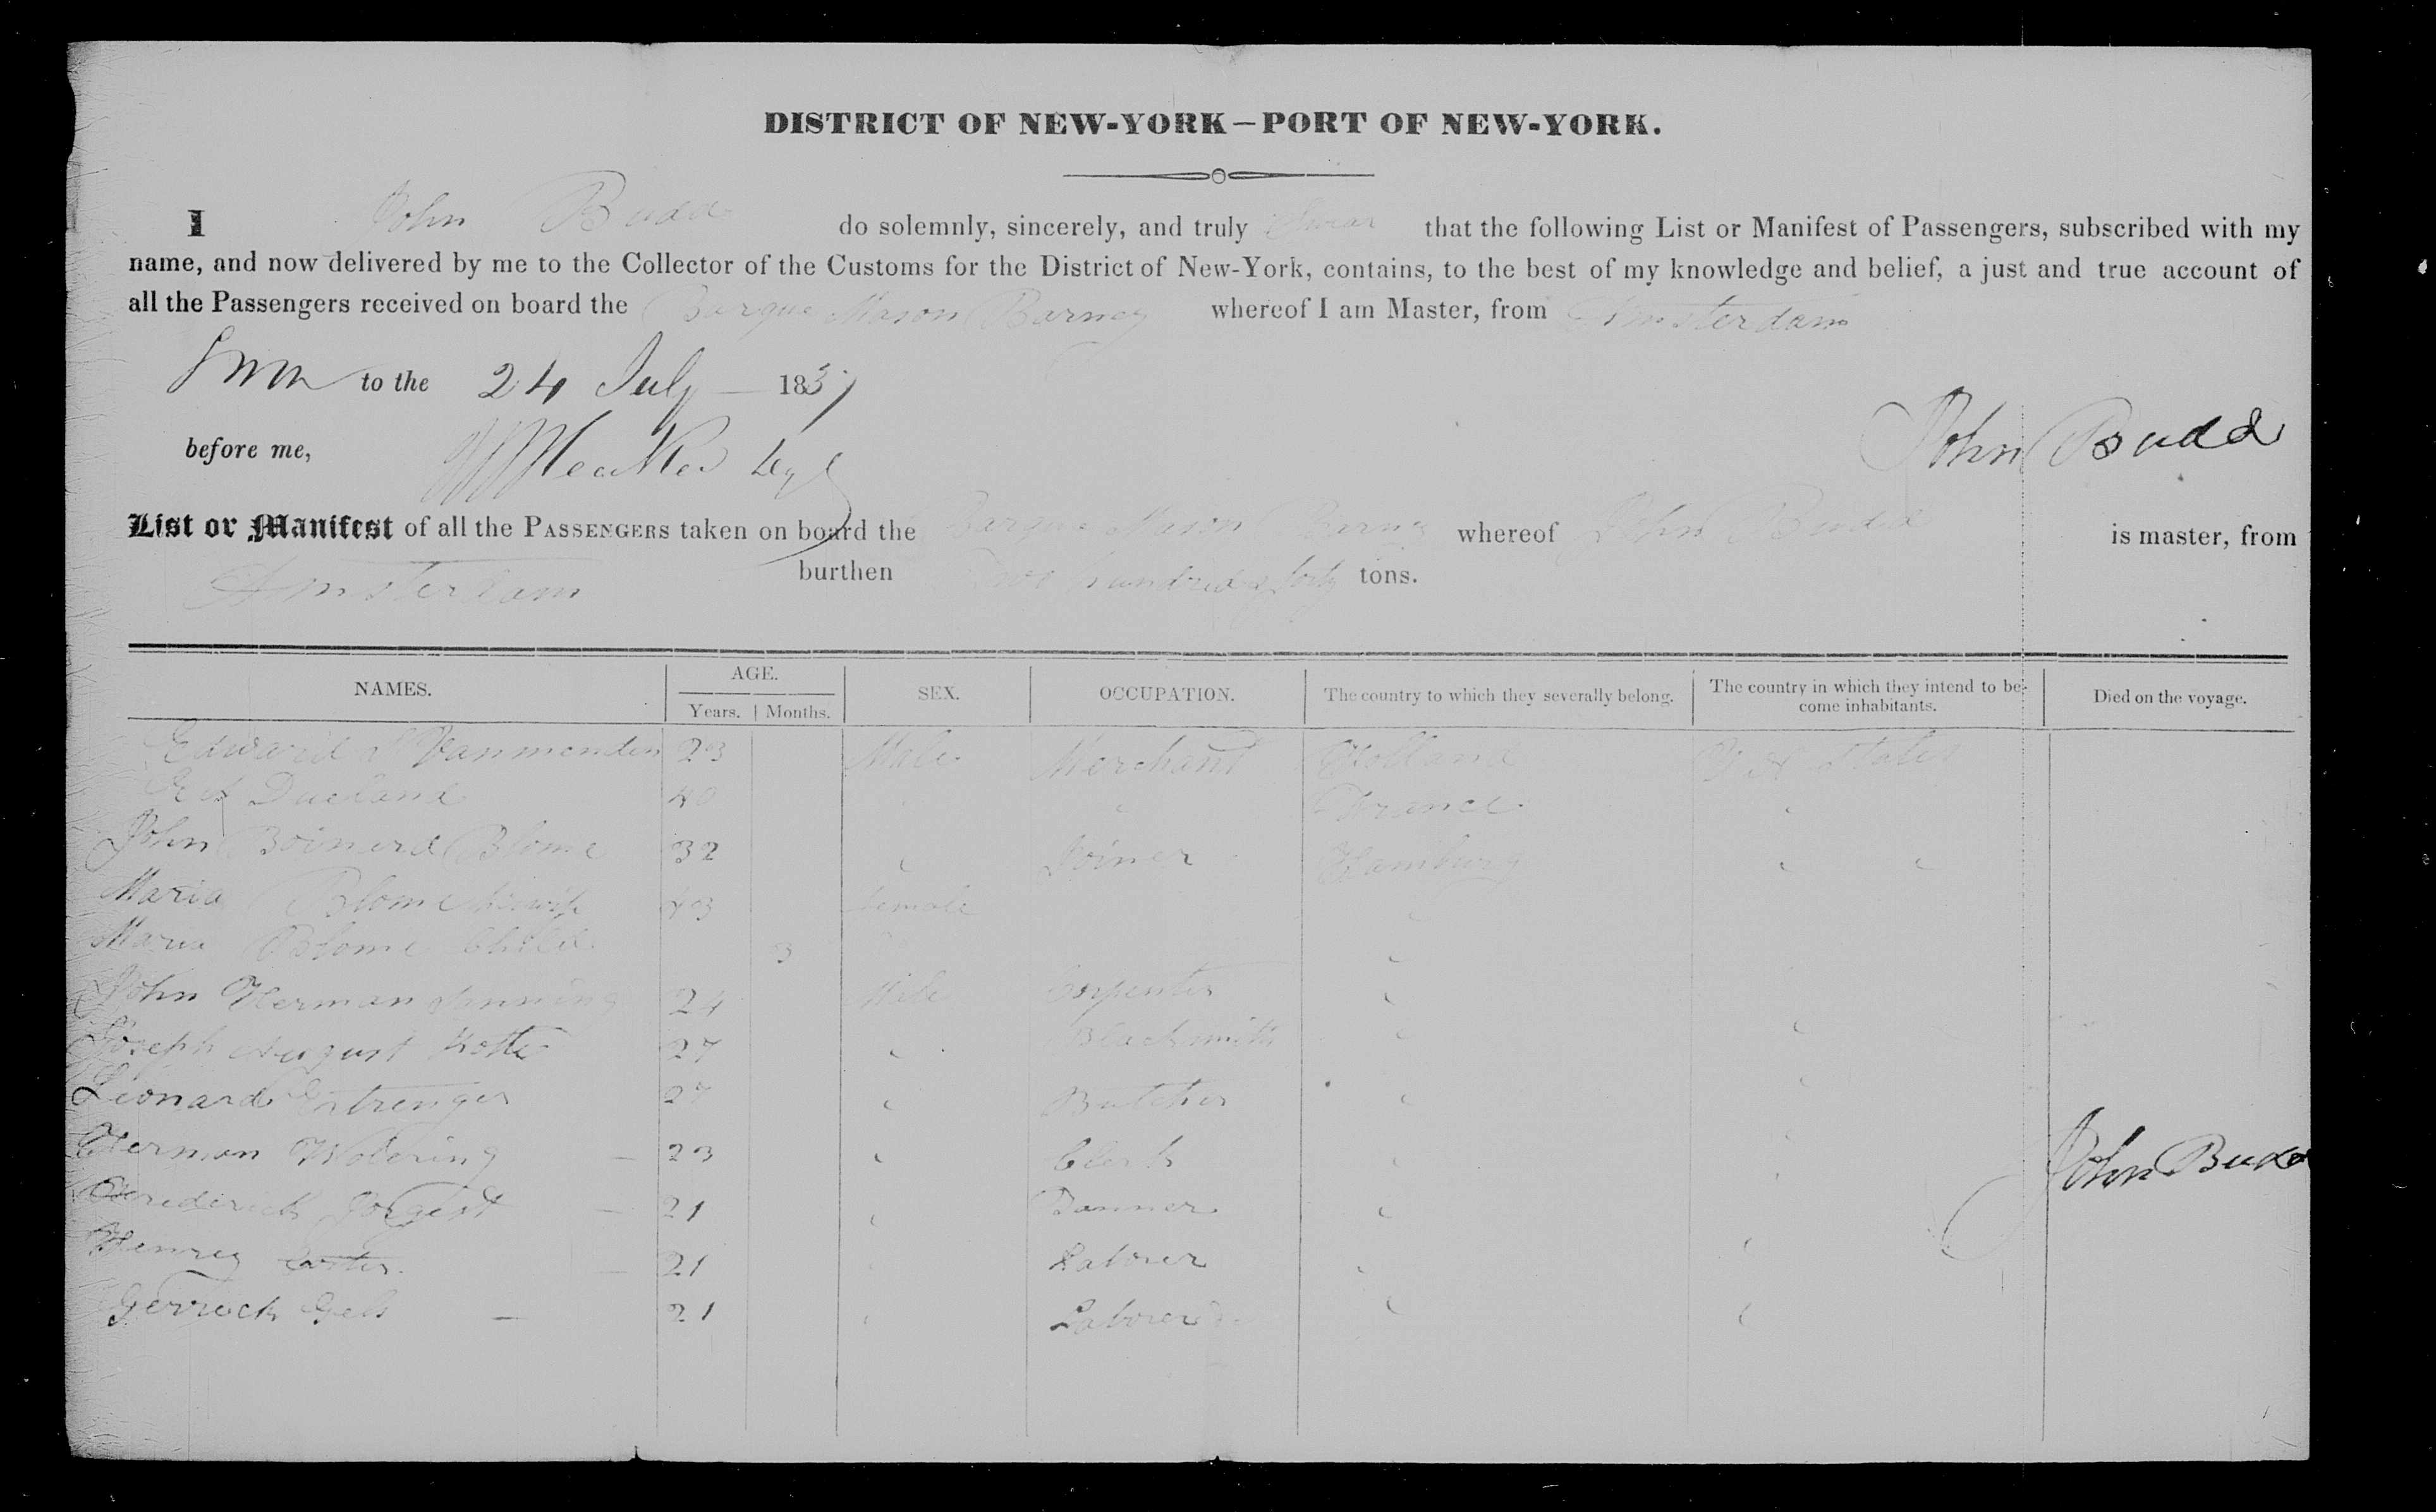 DISTRICT OF NEW-YORK—PORT OF NEW-YORK.
I John Budd do solemnly, sincerely, and truly Swear that the following List or Manifest of Passengers, subscribed with my
name, and now delivered by me to the Collector of the Customs for the District of New-York, contains, to the best of my knowledge and belief, a just and true account of
all the Passengers received on board the Barque Mason Barney whereof I am Master, from Amsterdam
Sworn to the 24 July 1837
John Budd
before me,
List or Manifest of all the PASSENGERS taken on board the Barque Mason Barney whereof John Budd is master, from
Amsterdam burthen Two hundred & forty tons.
NAMES. AGE. SEX. OCCUPATION. The country to which they severally belong. The country in which they intend to be- Died on the voyage.
Years. Months. come inhabitants.
Edward Vanmenden 23 Male Merchant Holland States
40 France
John Blome 32 Joiner Hamburg
Maria Blome 23 female
Maria Blome Child 3
John Herman 24 Male Carpenter
Joseph August 27 Blacksmith
Leonard 27 Butcher
Herman 23 Clerk
John Budd
Frederick 21 Tanner
Henry 21 Laborer
21 Laborer